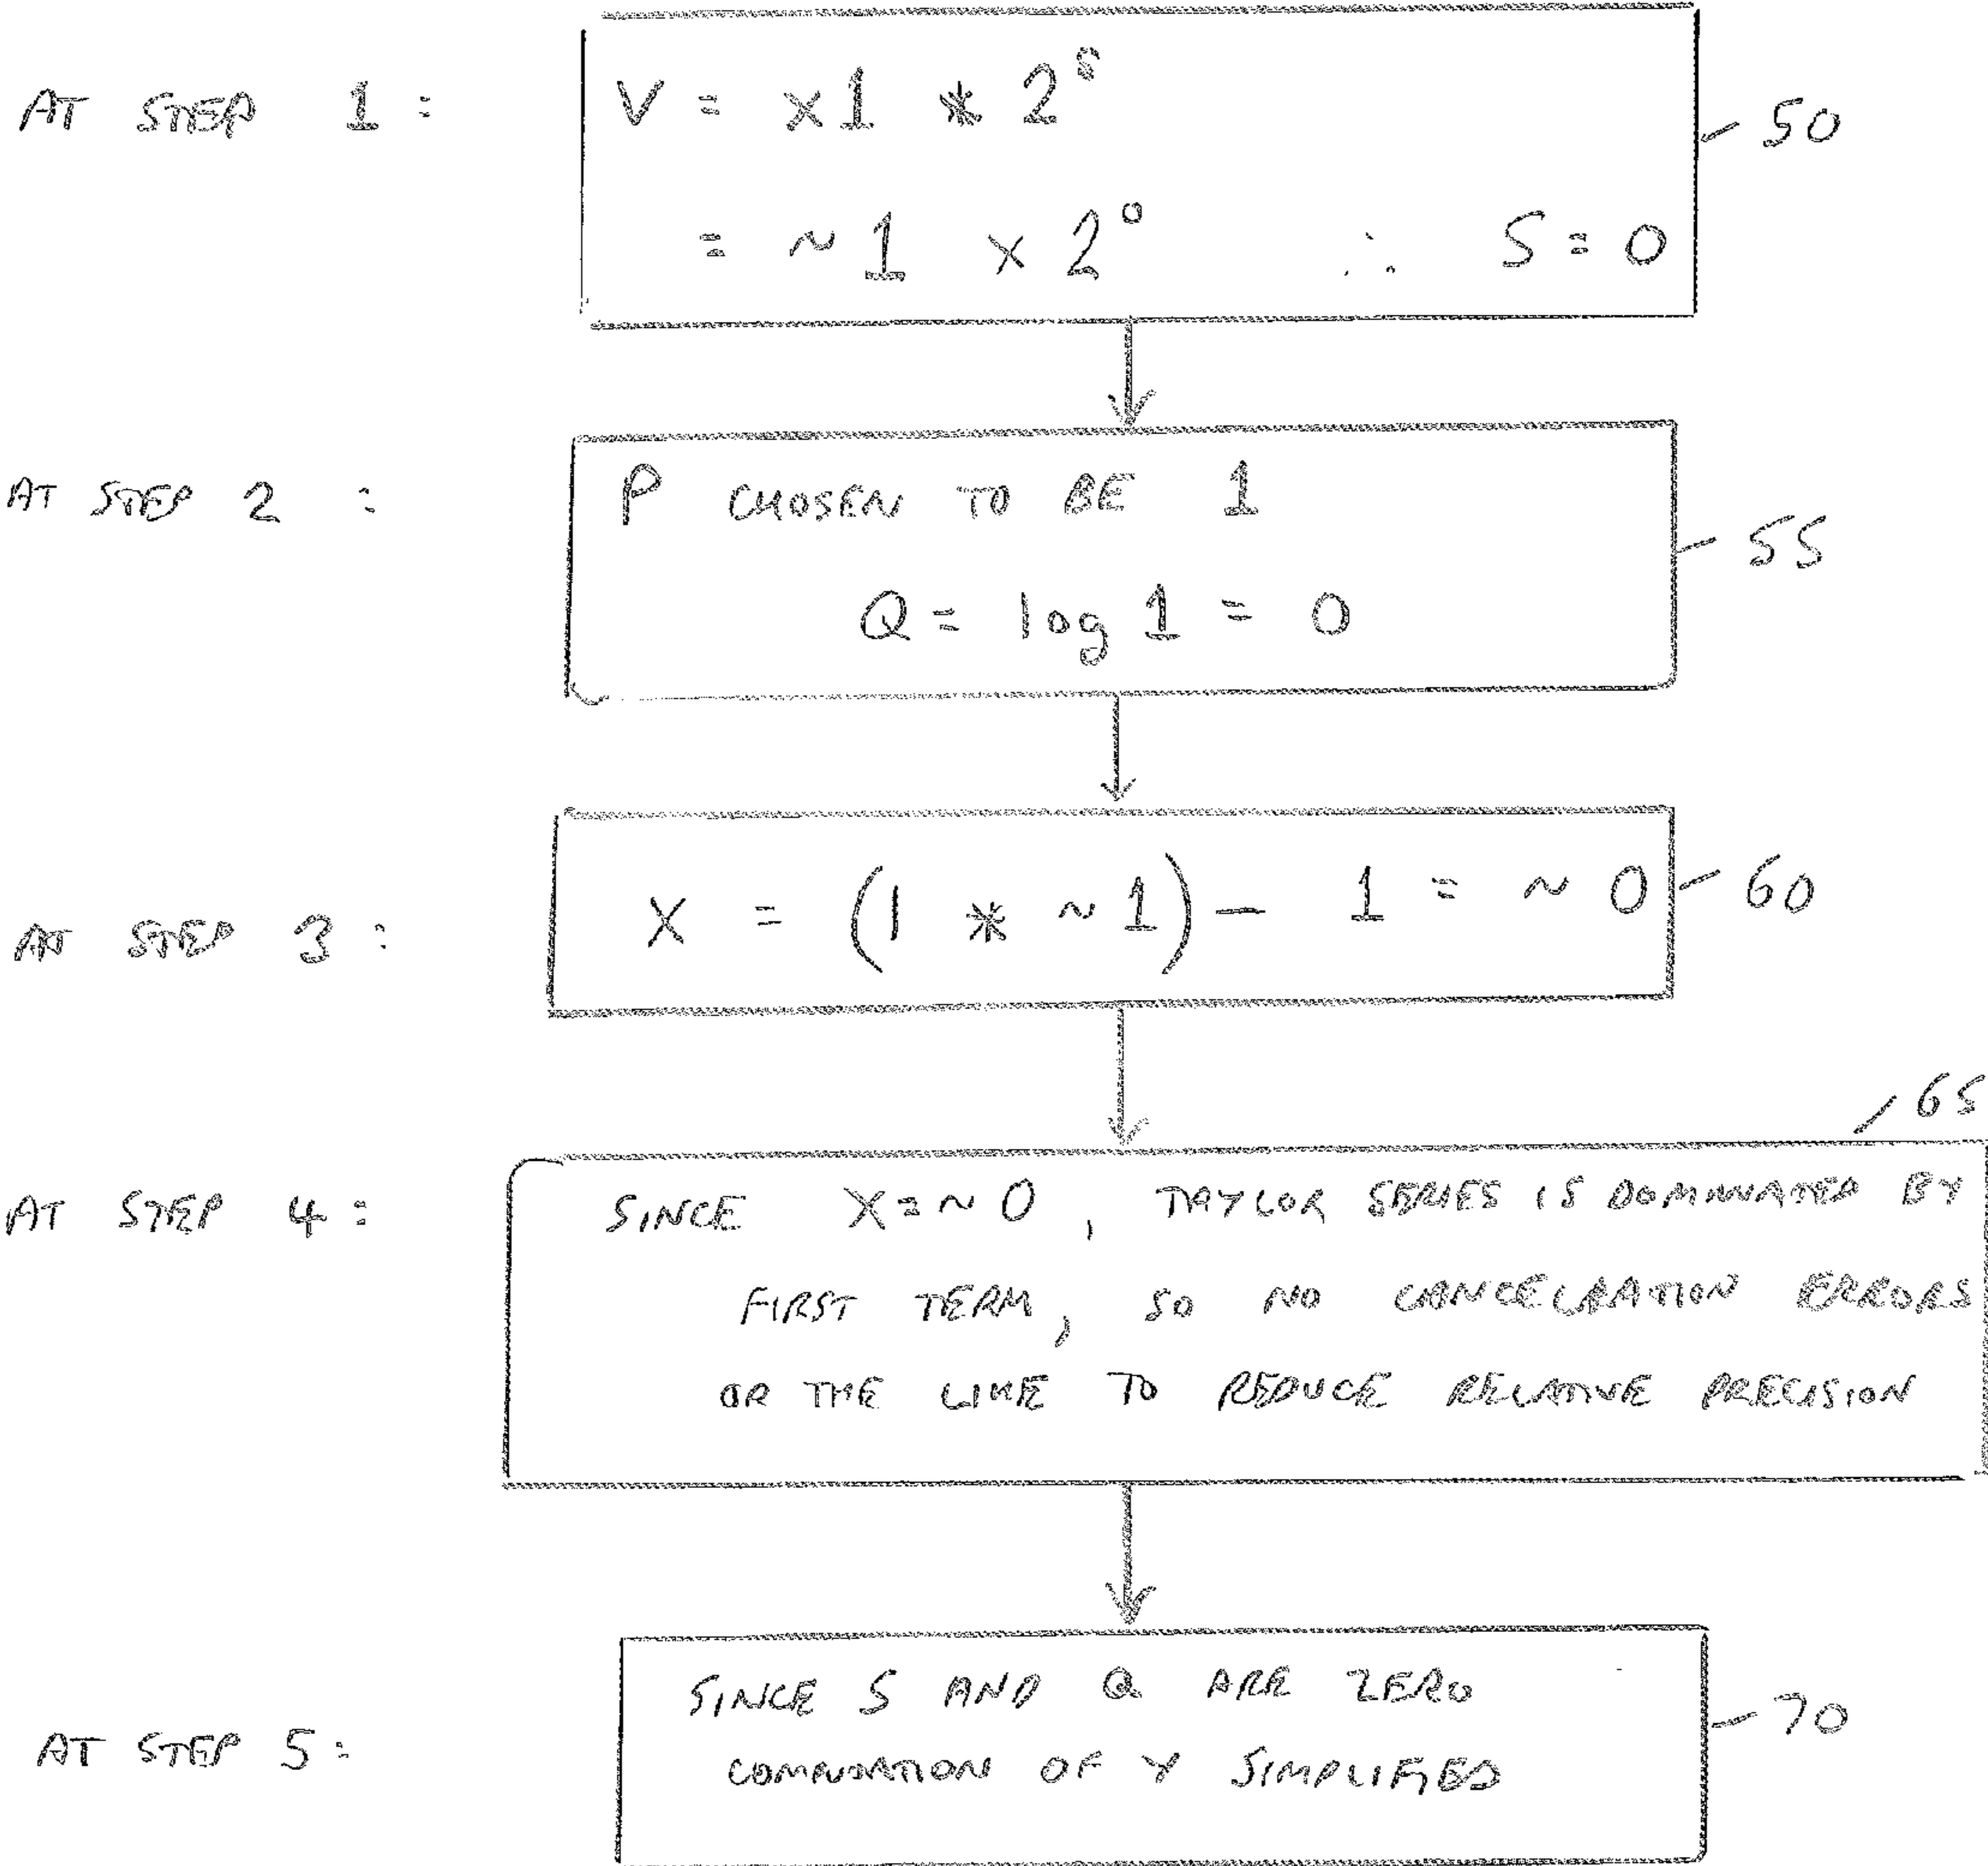 AT STEP 1 :
V = x1 * 2^S
50
= ~1 x 2^0 ∴ S = 0
AT STEP 2 :
P CHOSEN TO BE 1
55
Q = log 1 = 0
AT STEP 3 :
X = (1 * ~1) - 1 = ~0
60
65
AT STEP 4 :
SINCE X = ~0, TAYLOR SERIES IS DOMINATED BY
FIRST TERM, SO NO CANCELLATION ERRORS
OR THE LIKE TO REDUCE RELATIVE PRECISION
AT STEP 5 :
SINCE S AND Q ARE ZERO
70
COMPUTATION OF Y SIMPLIFIED